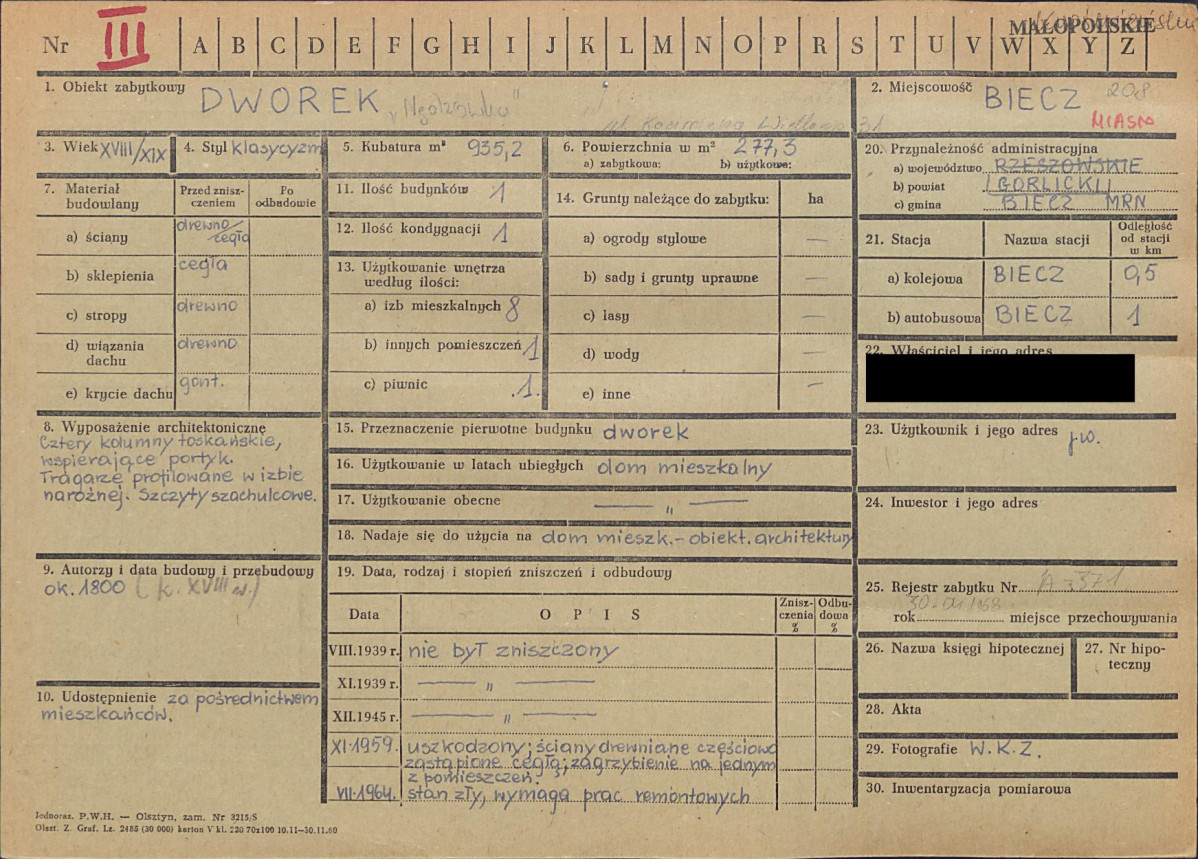 Nr III A B C D E F G H I J K L M N O P R S T U V W X Y Z
MAŁOPOLSKIE
1. Obiekt zabytkowy DWOREK
ul. Kazimierza Wielkiego 31
2. Miejscowość BIECZ 208
MIASTO
3. Wiek XVIII/XIX
4. Styl klasycyzm
5. Kubatura m³ 935,2
6. Powierzchnia w m² 277,3
a) zabytkowa: b) użytkowa:
7. Materiał budowlany
Przed zniszczeniem
Po odbudowie
a) ściany drewno/cegła
b) sklepienia cegła
c) stropy drewno
d) wiązania dachu drewno
e) krycie dachu gont.
8. Wyposażenie architektoniczne
Cztery kolumny toskańskie,
wspierające portyk.
Tragarze profilowane w izbie
narożnej. Szczyty szachulcowe.
9. Autorzy i data budowy i przebudowy
ok. 1800 (k. XVIII w.)
10. Udostępnienie za pośrednictwem
mieszkańców.
11. Ilość budynków 1
12. Ilość kondygnacji 1
13. Użytkowanie wnętrza
według ilości:
a) izb mieszkalnych 8
b) innych pomieszczeń 1
c) piwnic .1.
14. Grunty należące do zabytku: ha
a) ogrody stylowe —
b) sady i grunty uprawne —
c) lasy —
d) wody —
e) inne —
15. Przeznaczenie pierwotne budynku dworek
16. Użytkowanie w latach ubiegłych dom mieszkalny
17. Użytkowanie obecne — „ —
18. Nadaje się do użycia na dom mieszk.- obiekt. architektury
19. Data, rodzaj i stopień zniszczeń i odbudowy
Data
O P I S
Zniszczenia %
Odbudowa %
VIII.1939 r. nie był zniszczony
XI.1939 r. — „ —
XII.1945 r. — „ —
XI.1959. uszkodzony; ściany drewniane częściowo
zastąpione cegłą; zagrzybienie na jednym
z pomieszczeń.
VII.1964. stan zły, wymaga prac remontowych
20. Przynależność administracyjna
a) województwo RZESZOWSKIE
b) powiat GORLICKI
c) gmina BIECZ MRN
21. Stacja
Nazwa stacji
Odległość od stacji w km
a) kolejowa BIECZ 0,5
b) autobusowa BIECZ 1
22. Właściciel i jego adres
23. Użytkownik i jego adres j.w.
24. Inwestor i jego adres
25. Rejestr zabytku Nr A-3371
30.01.1968
rok miejsce przechowywania
26. Nazwa księgi hipotecznej
27. Nr hipoteczny
28. Akta
29. Fotografie W.K.Z.
30. Inwentaryzacja pomiarowa
Jednoraz. P.W.H. — Olsztyn, zam. Nr 3215/S
Olszt. Z. Graf. Lz. 2485 (30 000) karton V kl. 220 70x100 10.11—30.11.60